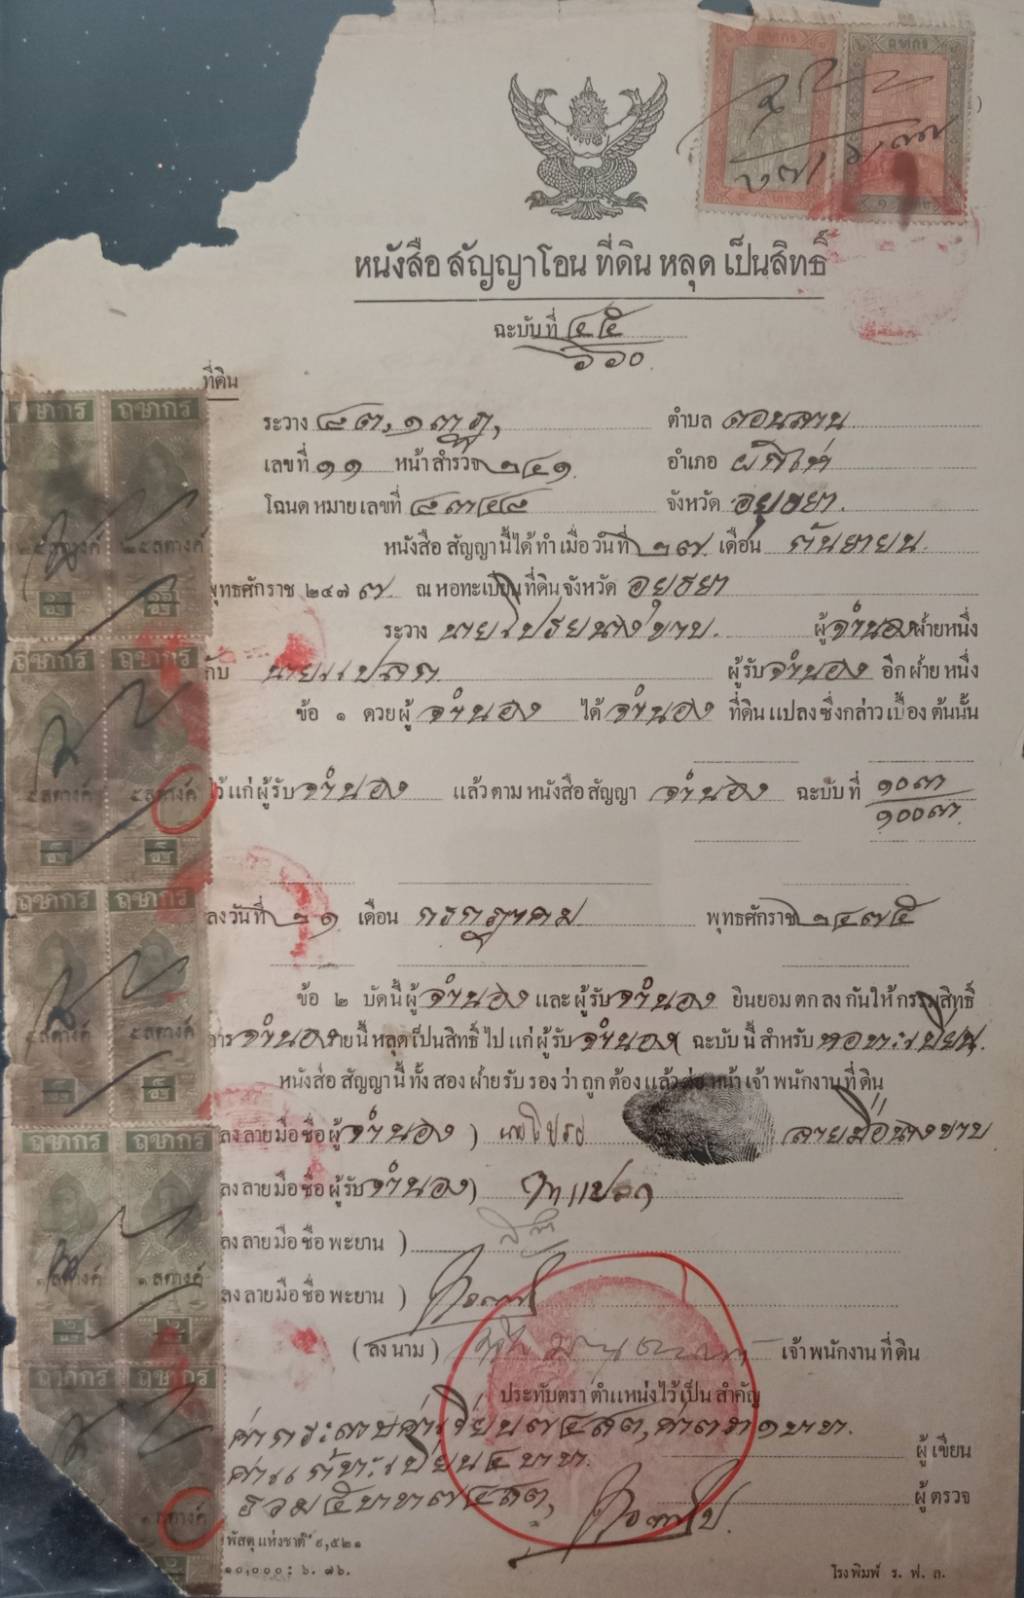 อากร
อากร
หนังสือ สัญญาโอน ที่ดิน หลุด เป็นสิทธิ์
ฉะบับที่ ๔๕
๖๖๐
ที่ดิน
ระวาง ๘ต, ๑๓ฎ, ตำบล ดอนลาน
เลขที่ ๑๑ หน้าสำรวจ ๒๔๑ อำเภอ ผักไห่
โฉนดหมายเลขที่ ๘๓๔๘ จังหวัด อยุธยา.
หนังสือ สัญญานี้ได้ ทำเมื่อวันที่ ๒๗ เดือน กันยายน
พุทธศักราช ๒๔๗๗ ณ หอทะเบียนที่ดินจังหวัด อยุธยา
ระวาง นายโปรยนางขาบ ผู้จำนองฝ่ายหนึ่ง
กับ นายแปลก ผู้รับจำนอง อีกฝ่ายหนึ่ง
ข้อ ๑ ดวยผู้ จำนอง ได้ จำนอง ที่ดินแปลงซึ่งกล่าวเบื้องต้นนั้น
ไว้แก่ผู้รับจำนอง แล้วตามหนังสือสัญญา จำนอง ฉะบับที่ ๑๐๓
๑๐๐๓
ลงวันที่ ๒๑ เดือน กรกฎาคม พุทธศักราช ๒๔๗๕
ข้อ ๒ บัดนี้ผู้จำนอง และผู้รับจำนอง ยินยอมตกลงกันให้กรรมสิทธิ์
การจำนองรายนี้หลุดเป็นสิทธิ์ไปแก่ผู้รับจำนอง ฉะบับนี้สำหรับ หอทะเบียน.
หนังสือ สัญญานี้ ทั้งสองฝ่ายรับรองว่าถูกต้องแล้วต่อหน้าเจ้าพนักงานที่ดิน
ลงลายมือชื่อผู้จำนอง ) นายโปรย ลายมือนางขาบ
ลงลายมือชื่อผู้รับจำนอง) นายแปลก
ลงลายมือชื่อพะยาน )
ลงลายมือชื่อพะยาน )
(ลงนาม) เจ้าพนักงานที่ดิน
ประทับตราตำแหน่งไว้เป็นสำคัญ
ค่ากระดาษค่าเขียน๗๔สต, ค่าตรา๑บาท.
ผู้เขียน
ค่าแก้ทะเบียน๔บาท.
รวม๕บาท๗๔สต,
ผู้ตรวจ
พัสดุแห่งชาติ ๙,๕๒๑
๑๐,๐๐๐: ๖. ๗๖.
โรงพิมพ์ ร. ฟ. ล.
ฤชากร ฤชากร
๒๕สตางค์ ๒๕สตางค์
ฤชากร ฤชากร
๕สตางค์ ๕สตางค์
ฤชากร ฤชากร
๕สตางค์ ๕สตางค์
ฤชากร ฤชากร
๑สตางค์ ๑สตางค์
ฤชากร ฤชากร
๑สตางค์